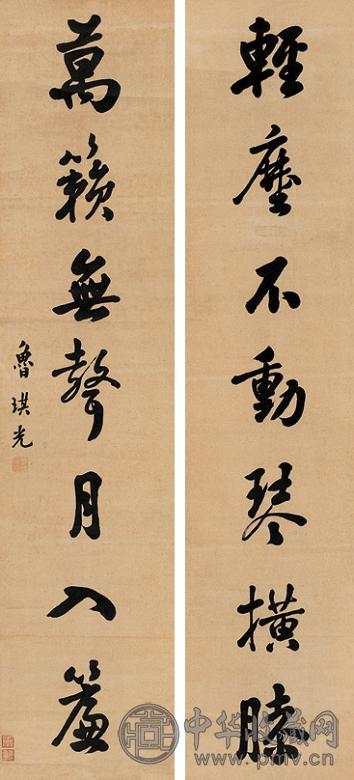 輕塵不動琴橫膝
萬籟無聲月入簾
魯琪光
中华收藏网
www.pmcv.cn